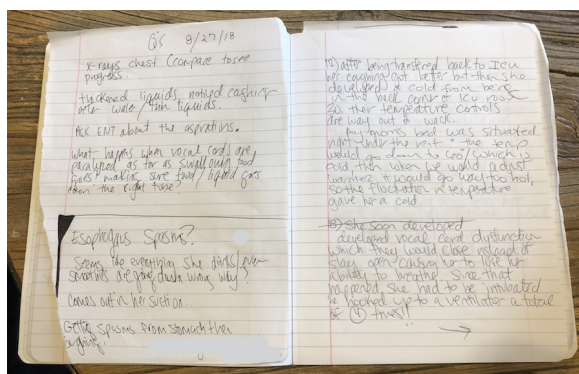 Q's 8/27/18
x-rays chest (compare to see
progress.
thickened liquids, noticed
after water/thin liquids.
Ask ENT about the aspirations.
what happens when vocal cords are
paralyzed as far as swallowing food
goes? making sure food/liquid goes
down the right tube?
Esophagus Spasms?
Seems like everything she drinks, even
are going down wrong way?
Comes out in her suction.
Getting spasms from stomach then
after being transfered back to Icu
her coughing got better but then she
developed a cold from being
in the back corner Icu room
20 ther temperature controls
are way out of wack.
My moms bed was situated
right under the vent & the temp
would go down to 60s/which is
cold, then when we would adjust
warmer it would go way too hot,
so the fluctuation in temperature
gave her a cold.
B) She soon developed
developed vocal cord dysfunction
which they would close instead of
stay open causing her to lose her
ability to breathe. Since that
happened, she had to be intubated
& hooked up to a ventilator a total
of 4 times!!